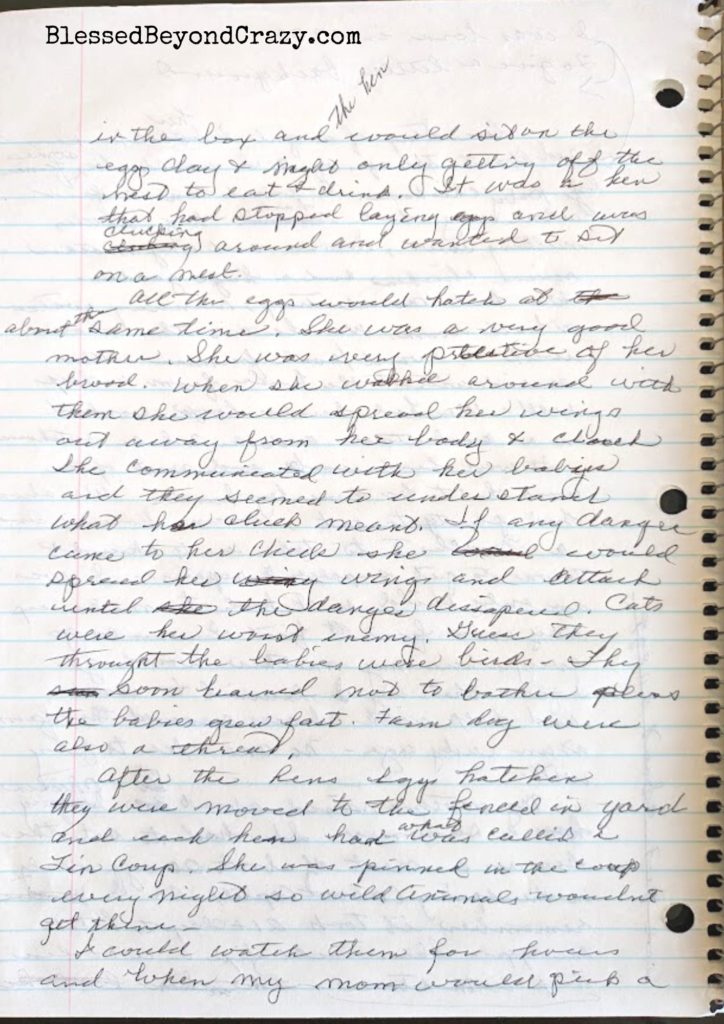 BlessedBeyondCrazy.com
the hen
in the box and would sit on the
egg day & night only getting off the
nest to eat & drink. It was a hen
that had stopped laying egg and was
clucking around and wanted to sit
on a nest.
All the eggs would hatch at
about the same time. She was a very good
mother. She was very protective of her
brood. When she walked around with
them she would spread her wings
out away from her body & cluck
She communicated with her babys
and they seemed to understand
what her cluck meant. If any danger
came to her chicks she would
spread her wings and attack
until the danger dissapered. Cats
were her worst enemy. Guess they
throught the babies were birds - They
soon learned not to bother plus
the babies grew fast. Farm dog were
also a thread.
After the hens eggs hatchen
they were moved to the fenced in yard
and each hen had what was called a
Tin Coup. She was pinned in the coup
every night so wild animals wouldnt
get them -
I could watch them for hours
and when my mom would pick a